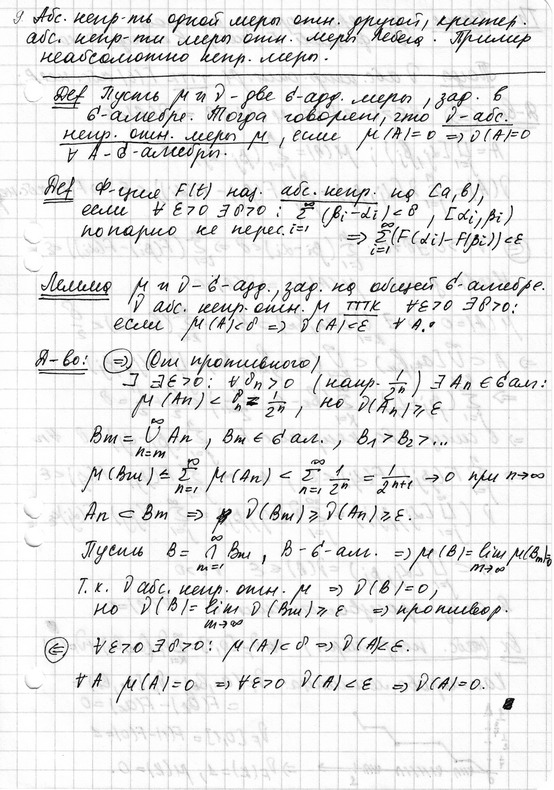 9 Абс. непр-ть одной меры отн. другой, критер.
абс. непр-ти меры отн. меры Лебега. Пример
неабсолютно непр. меры.
Def Пусть μ и ν - две σ-адд. меры, зад. в
σ-алгебре. Тогда говорят, что ν-абс.
непр. отн. меры μ, если μ(A)=0 => ν(A)=0
∀ A-σ-алгебры.
Def Ф-ция F(t) наз. абс. непр. на [a,b),
если ∀ε>0 ∃δ>0: ∑_{i=1}^{∞} (βi-αi)<δ, [αi,βi)
попарно не перес. => ∑_{i=1}^{∞} (F(αi)-F(βi))<ε
Лемма μ и ν-σ-адд., зад. на общей σ-алгебре.
ν абс. непр. отн. μ ттк ∀ε>0 ∃δ>0:
если μ(A)<δ => ν(A)<ε ∀A.
Д-во: (=>) (От противного)
∃ ∃ε>0: ∀δn>0 (напр. 1/2^n) ∃An∈σ ал:
μ(An)<δn = 1/2^n, но ν(An)≥ε
Bm = ∪_{n=m}^{∞} An, Bm∈σ ал., B1>B2>...
μ(Bm) ≤ ∑_{n=1}^{∞} μ(An) < ∑_{n=1}^{∞} 1/2^n = 1/2^{n+1} → 0 при n→∞
An ⊂ Bm => ν(Bm) ≥ ν(An) ≥ ε.
Пусть B = ∩_{m=1}^{∞} Bm, B-σ-алг. => μ(B) = lim_{m→∞} μ(Bm)=0
Т.к. ν абс. непр. отн. μ => ν(B)=0,
но ν(B) = lim_{m→∞} ν(Bm) ≥ ε => противор.
(<=) ∀ε>0 ∃δ>0: μ(A)<δ => ν(A)<ε.
∀A μ(A)=0 => ∀ε>0 ν(A)<ε => ν(A)=0.